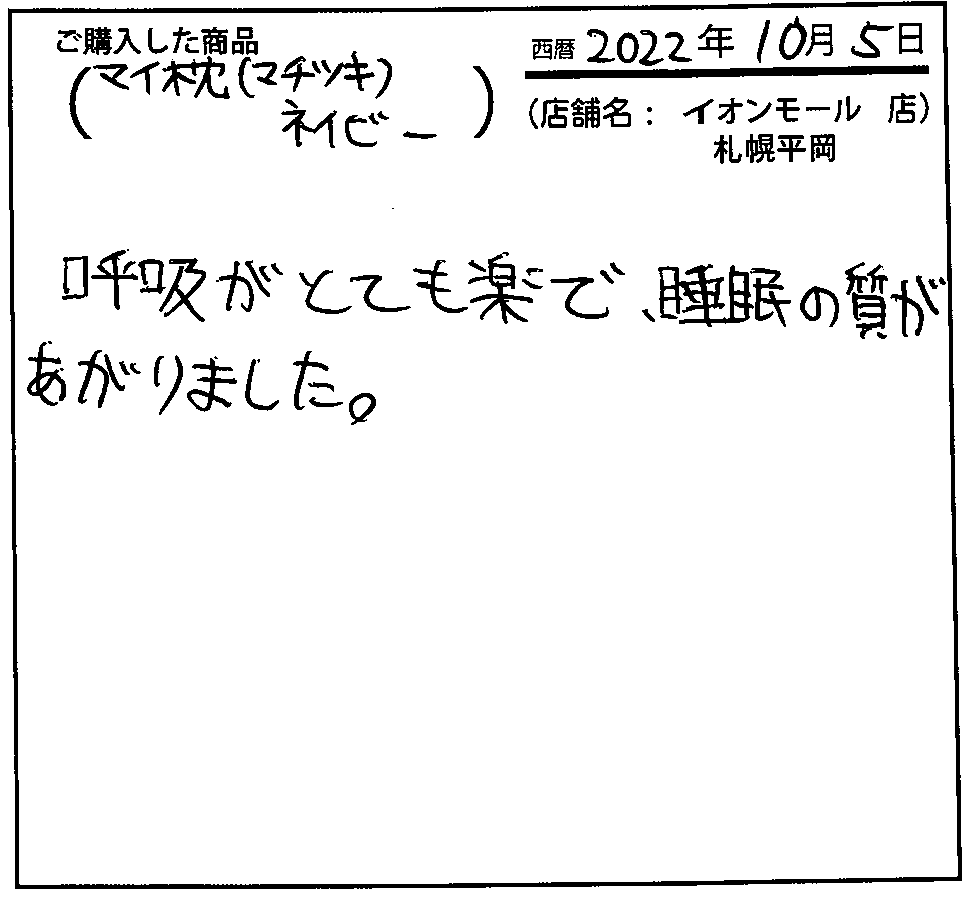 ご購入した商品
西暦 2022年 10月 5日
(マイ枕(マチヅキ)
ネイビー)
(店舗名: イオンモール 店)
札幌平岡
呼吸がとても楽で、睡眠の質が
あがりました。